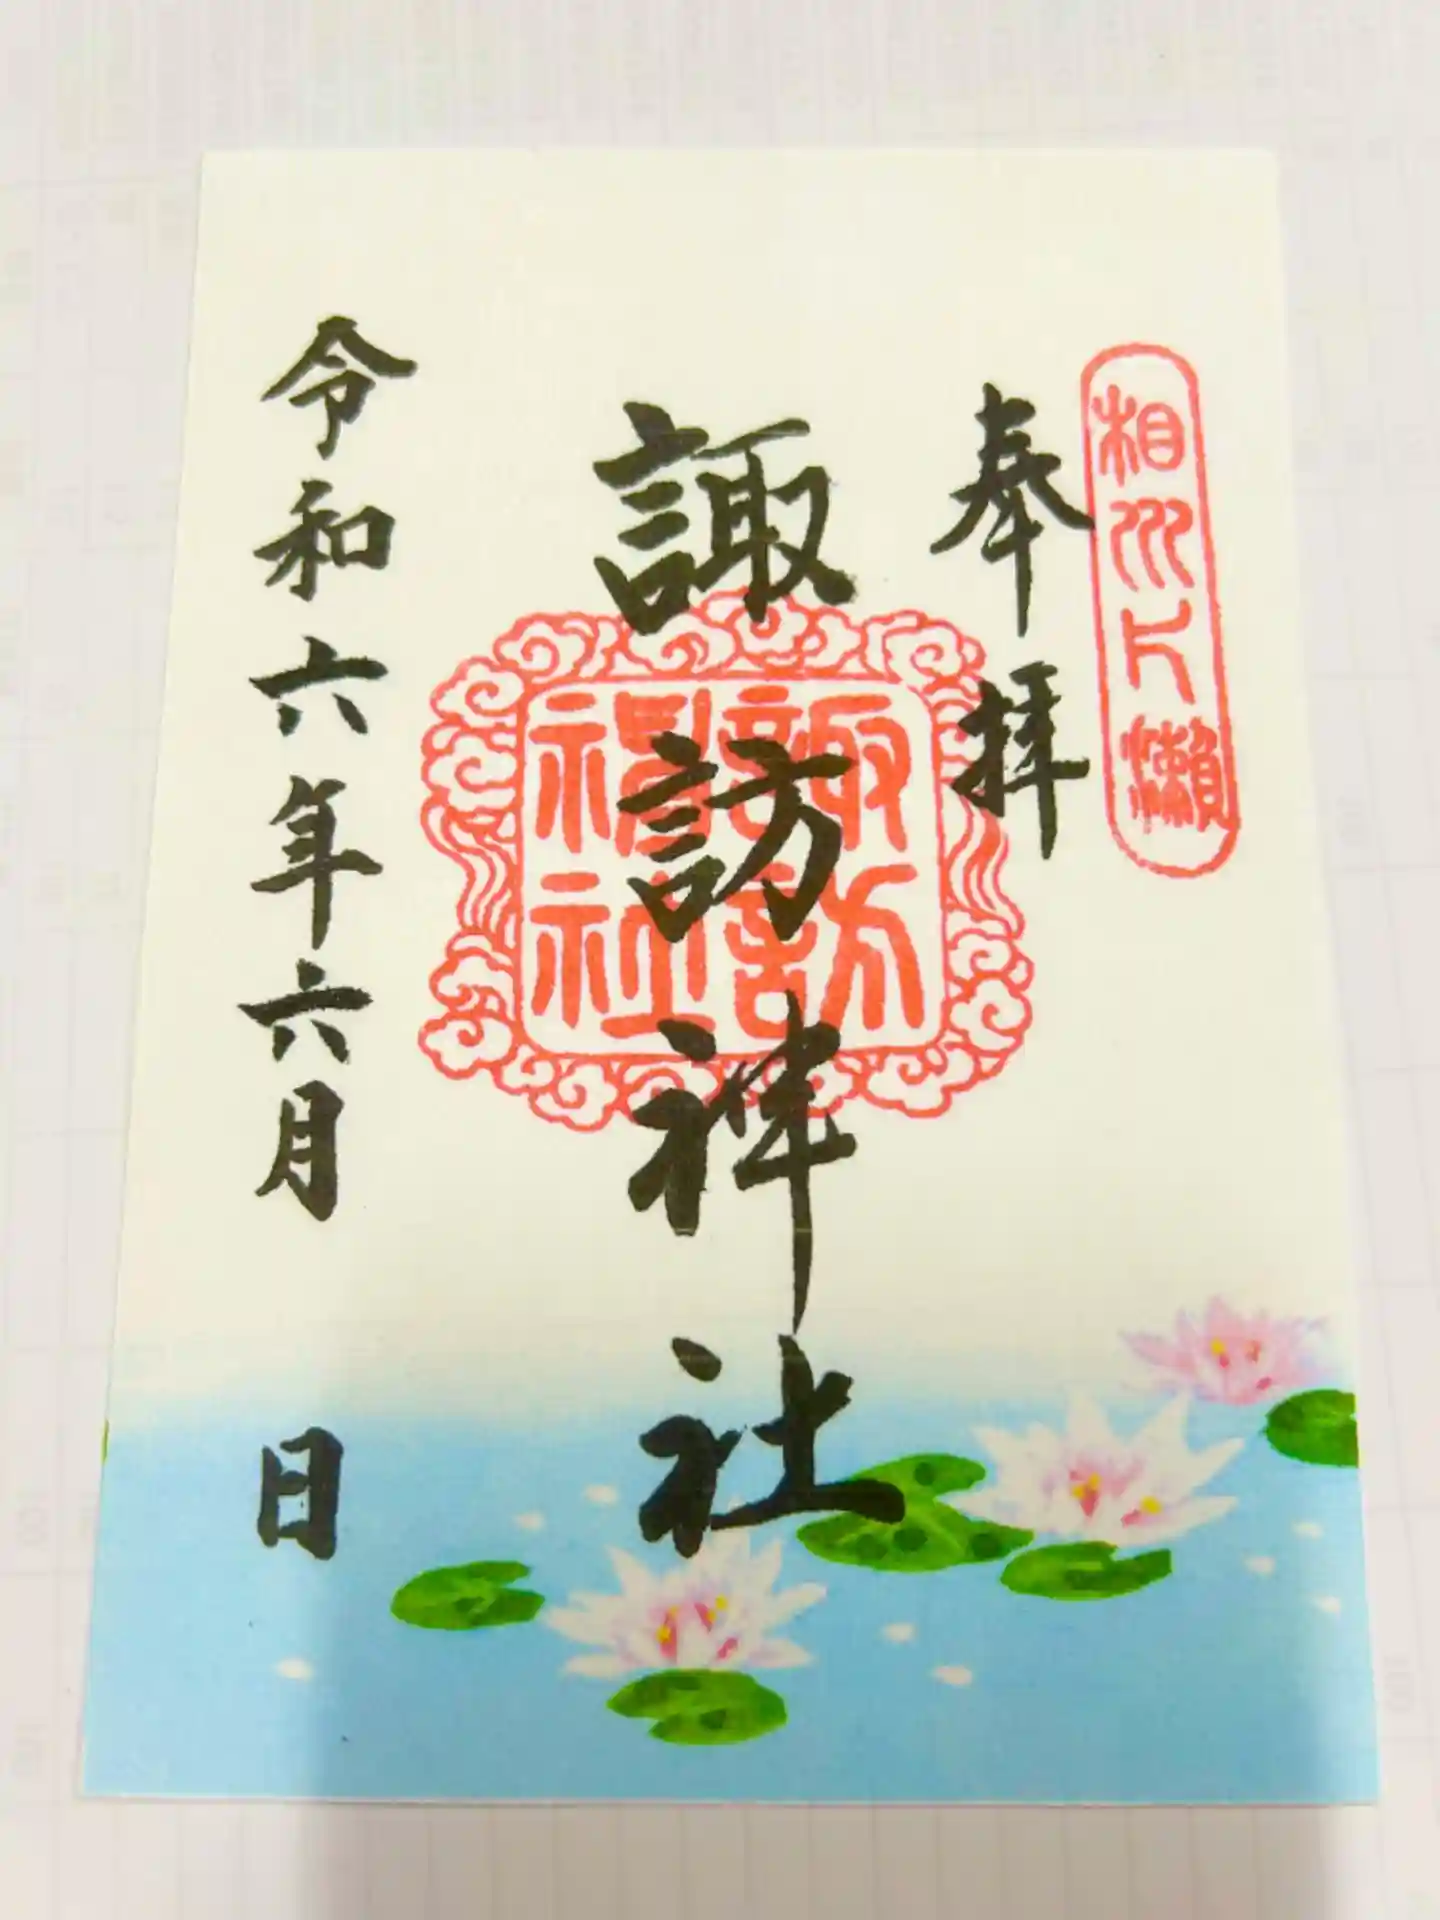 相州片瀬
奉拝
諏訪神社
諏訪
神社
令和六年六月 日